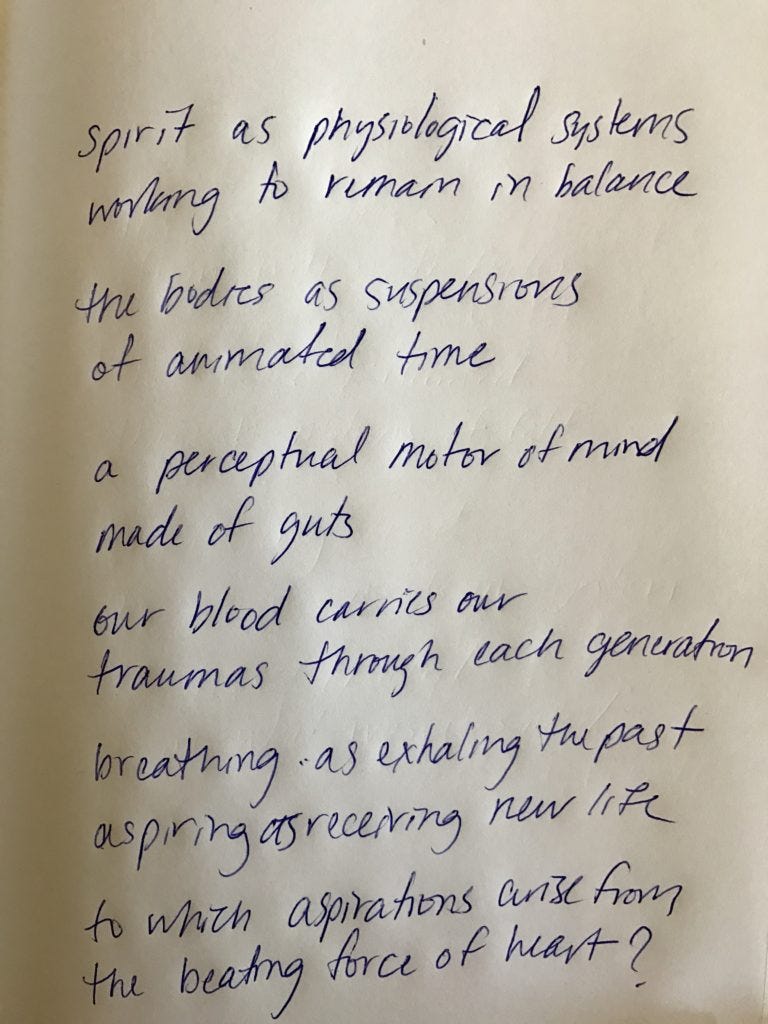 spirit as physiological systems
working to remain in balance
the bodies as suspensions
of animated time
a perceptual motor of mind
made of guts
our blood carries our
traumas through each generation
breathing as exhaling the past
aspiring as receiving new life
to which aspirations arise from
the beating force of heart?